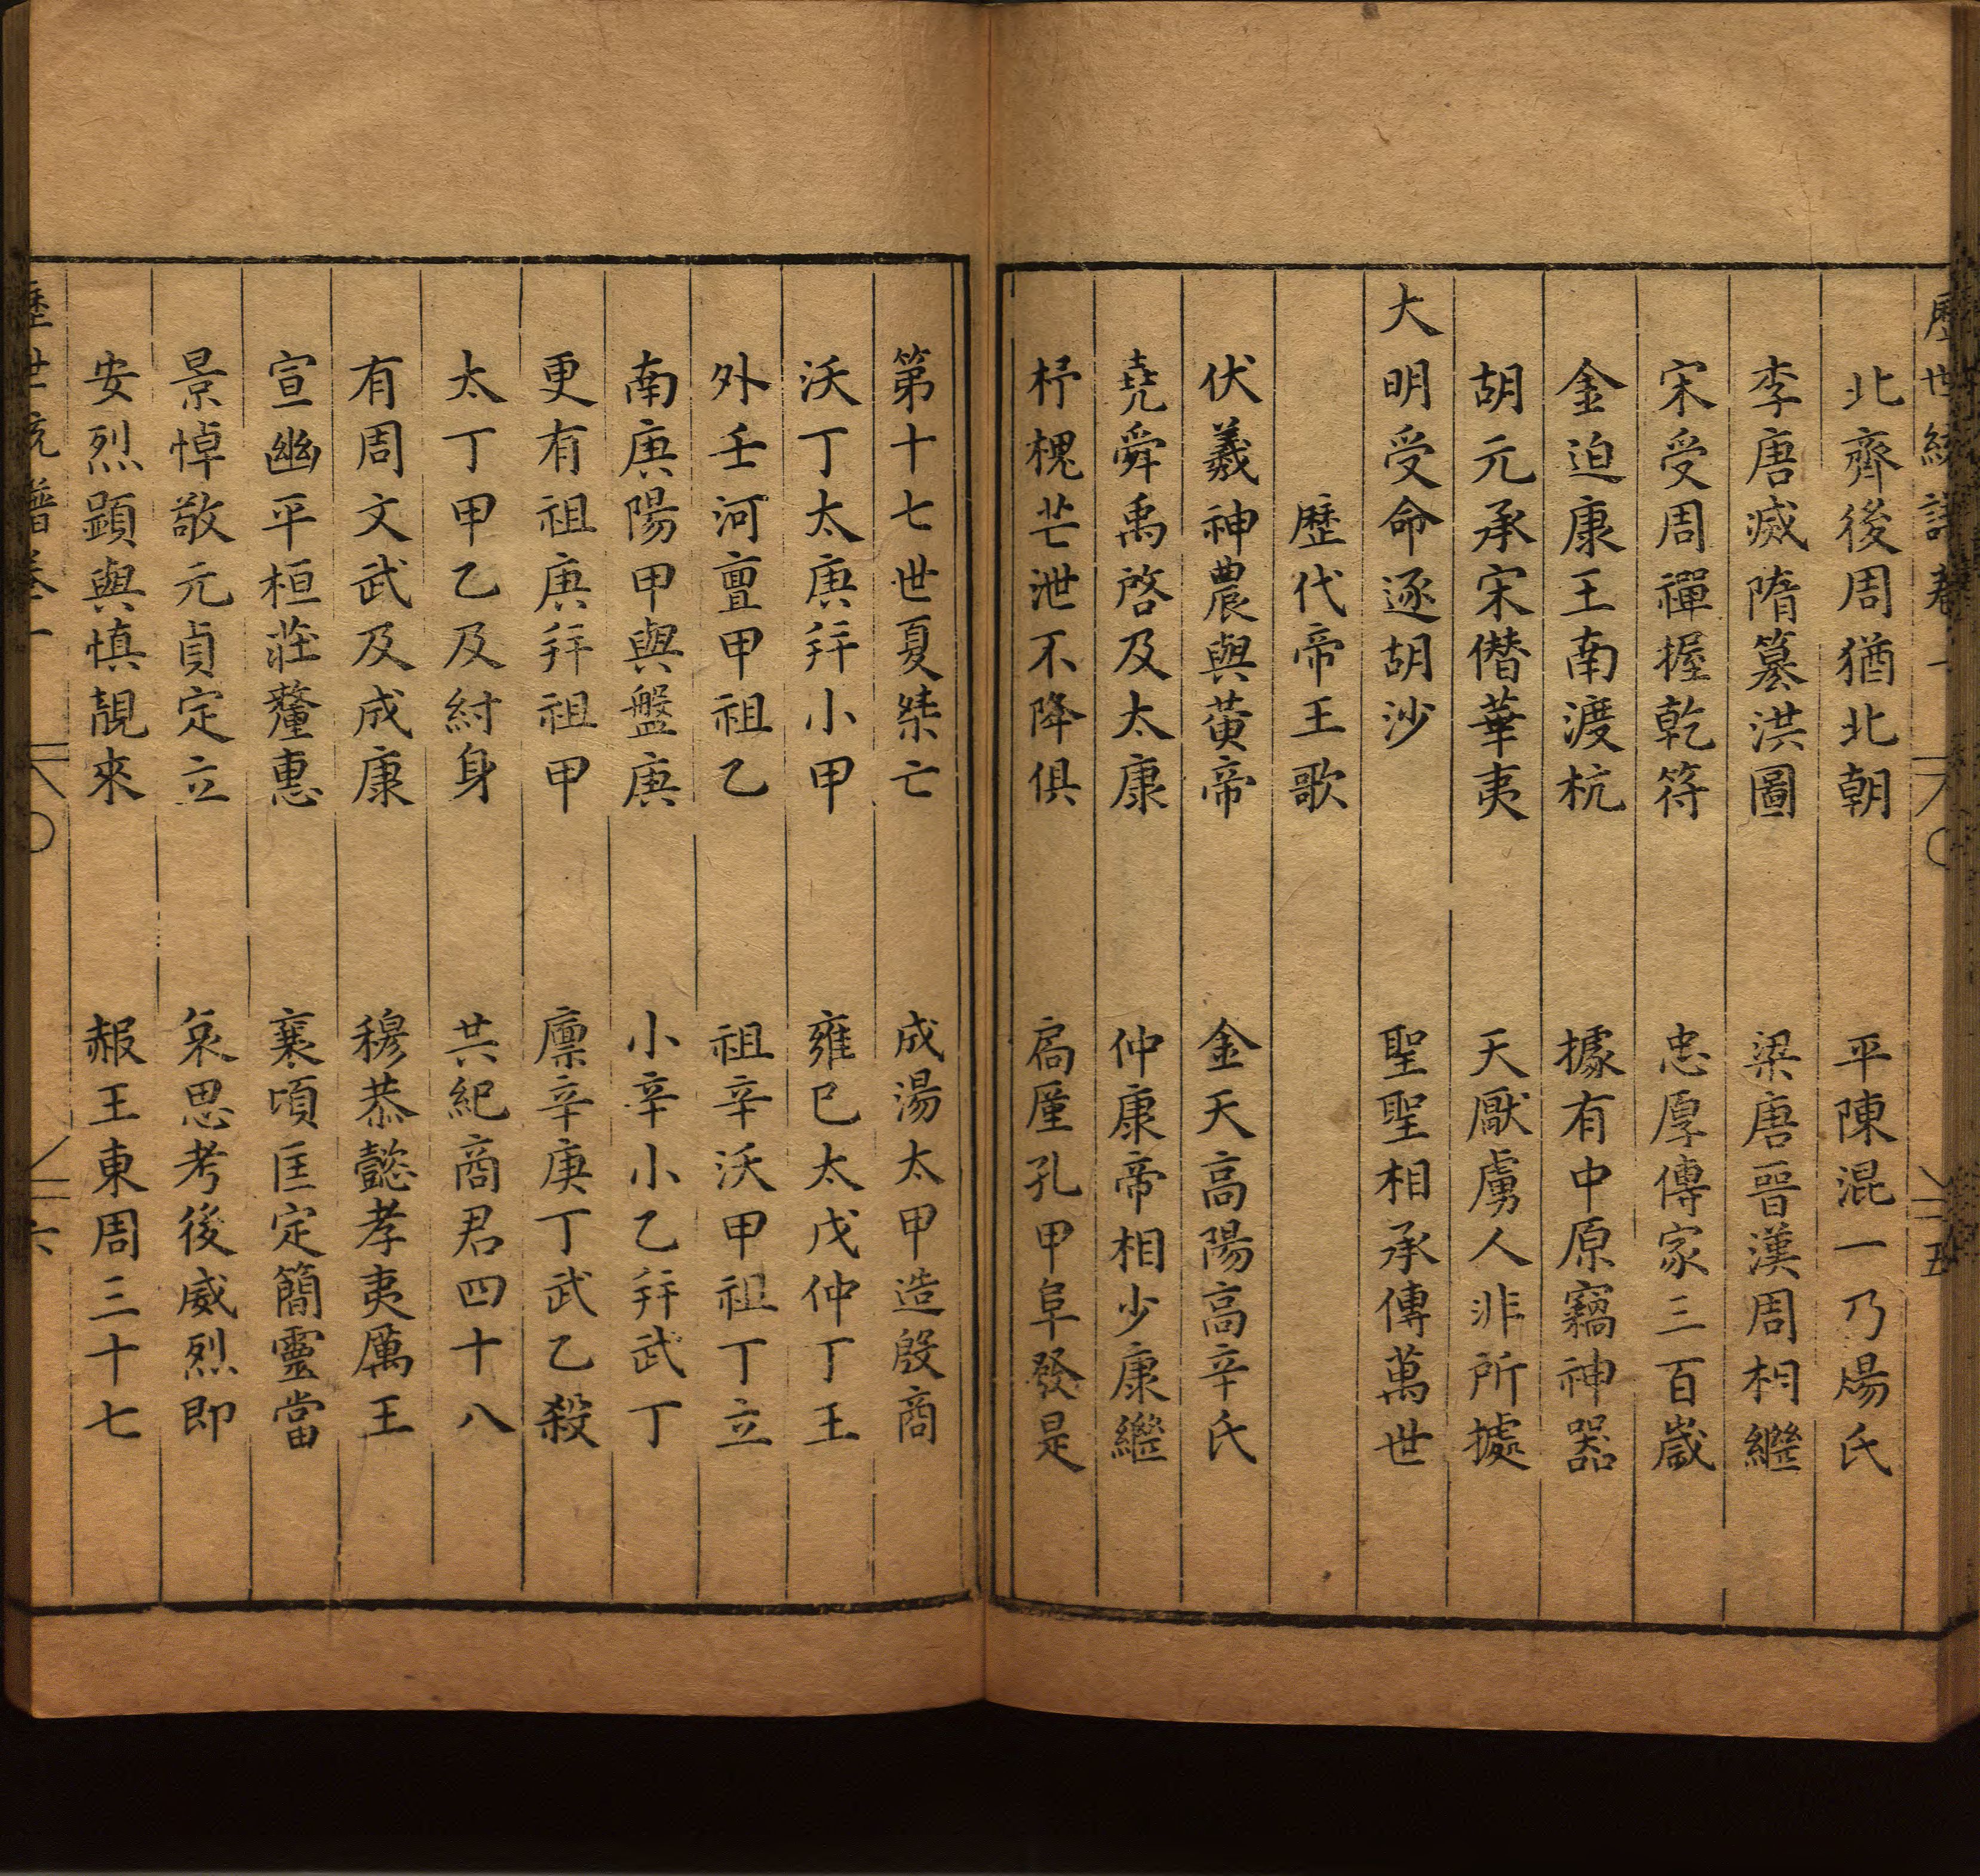 歷世統譜卷一 五
北齊後周猶北朝 平陳混一乃煬氏
李唐滅隋纂洪圖 梁唐晉漢周相繼
宋受周禪握乾符 忠厚傳家三百歲
金迫康王南渡杭 據有中原竊神器
胡元承宋僭華夷 天厭虜人非所據
大明受命逐胡沙 聖聖相承傳萬世
歷代帝王歌
伏羲神農與黃帝 金天高陽高辛氏
堯舜禹啓及太康 仲康帝相少康繼
杼槐芒泄不降俱 扃厪孔甲阜發是
第十七世夏桀亡 成湯太甲造殷商
沃丁太庚幷小甲 雍巳太戊仲丁王
外壬河亶甲祖乙 祖辛沃甲祖丁立
南庚陽甲與盤庚 小辛小乙幷武丁
更有祖庚幷祖甲 廩辛庚丁武乙殺
太丁甲乙及紂身 共紀商君四十八
有周文武及成康 穆恭懿孝夷厲王
宣幽平桓莊釐惠 襄頃匡定簡靈當
景悼敬元貞定立 哀思考後威烈即
安烈顕與慎靚來 赧王東周三十七
歷世統譜卷一 六